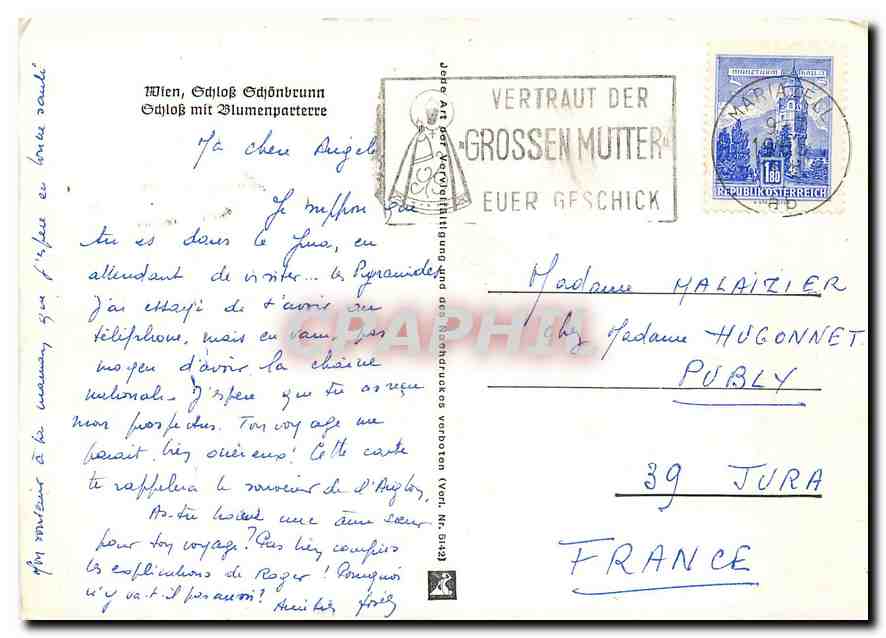 Wien, Schloß Schönbrunn
Schloß mit Blumenparterre
Ma chère Angèle
Je suppose que
tu es dans le Jura, en
attendant de visiter... les Pyramides
J'ai essayé de t'avoir au
téléphone, mais en vain, pas
moyen d'avoir la chaîne
nationale. J'espère que tu as reçu
mon prospectus. Ton voyage me
parait bien onéreux! Cette carte
te rappelera le souvenir de l'Aiglon,
As-tu trouvé une âme sœur
pour ton voyage? Pas bien compris
les explications de Roger! Pourquoi
n'y va-t-il pas aussi? Amitiés
à ta maman que j'espère en bonne santé
Jede Art der Vervielfältigung und des Nachdruckes verboten (Verl. Nr. 5142)
VERTRAUT DER
"GROSSEN MUTTER"
EUER GESCHICK
MARIAZELL
MÜNZTURM HALL i. T.
1.80
REPUBLIK ÖSTERREICH
Madame MALAIZIER
chez Madame HUGONNET
PUBLY
39 JURA
FRANCE
CPAPHIL